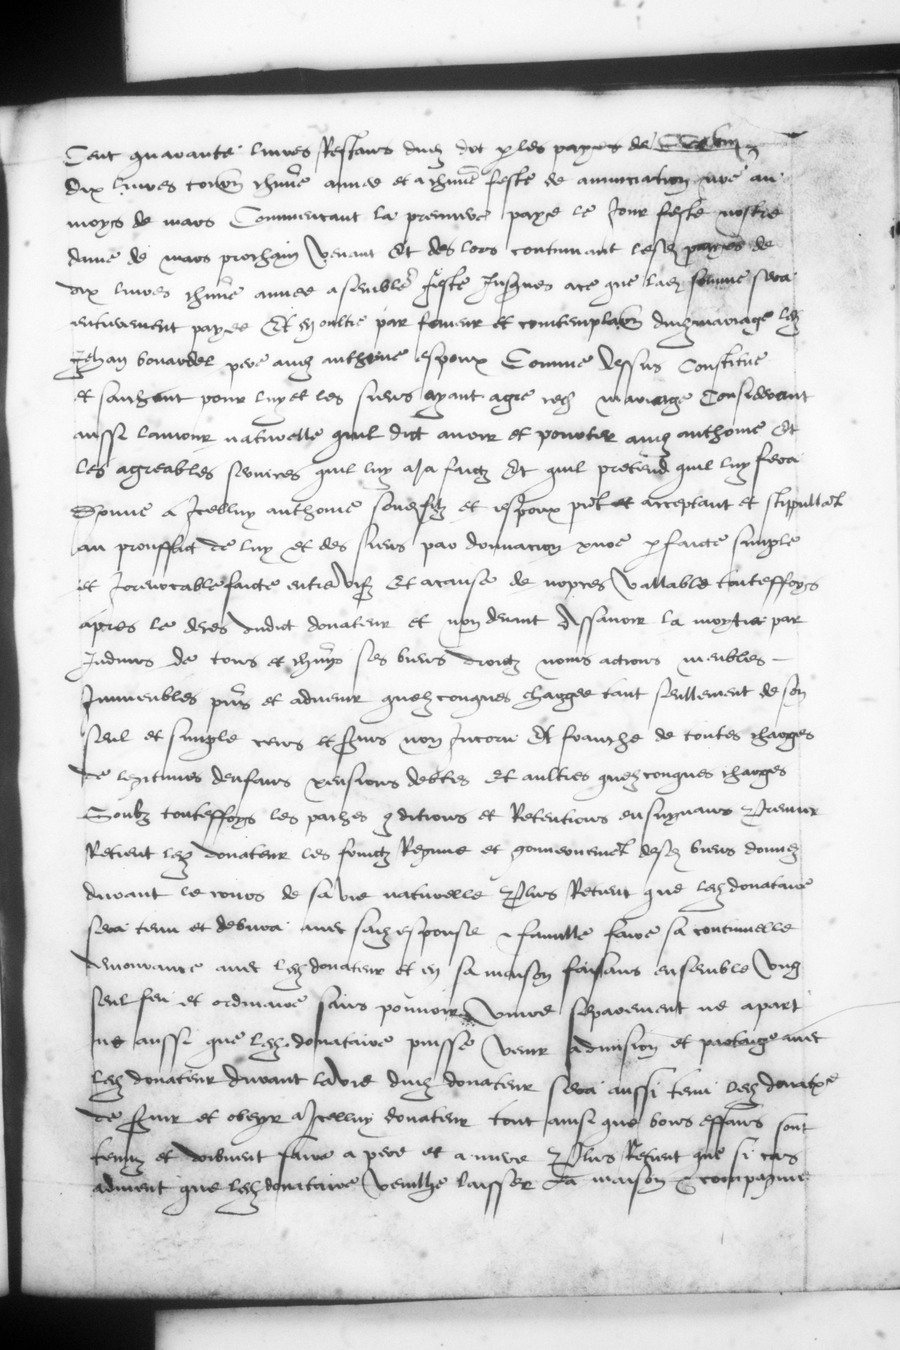 Cent quarante livres Restans dud dot p les payes de
dix livres tourn chune annee et a chune feste de annunciation nre au
moys de mars Commencant la premiere paye le Jour feste nostre
dame de mars prochain venant Et des lors continuant lesd payes de
dix livres chune annee a semblé feste Jusques ace que lad somme sera
entierement payee Et en oultre par faveur et contemplaon dud mariage led
Jehan bonardel pere aud anthoine espoux Comme dessus Constitue
et sachant pour luy et les siens ayant agre led mariage Considerant
aussi lamour naturelle quil dict avoir et pourter aud anthoine Et
les agreables services quil luy a Ja faictz Et quil pretend quil luy fera
Donne a Jcelluy anthoine son filz et espoux pnt et acceptant et stippullat
au prouffict de luy et des siens par donnacion pure pfaicte simple
et Jrrevocable faicte entre vifz Et a cause de nopces vallable toutteffoys
apres le deces dudict donateur et non devant Assavoir la moytie par
Jndivis de tous et chuns ses biens droictz noms actions meubles
Jmmeubles pns et advenir quelzconques chargee tant seullement de son
seul et simple cens et servis non Jncoru Et franche de toutes charges
de legitimes denfans pensions debtes Et aultres quelzconques charges
Soubz toutteffoys les paches qditions et Retentions ensuyvans Premier
Retient led donateur les fruictz Regime et gouvernemet desd biens donnez
durant le cours de sa vie naturelle Plus Retient que led donataire
sera tenu et debvra avec sad esponse & famille faire sa continuelle
demourance avec led donateur et en sa maison faisans ensemble ung
seul feu et ordinaire sans pouvoir vivre separement ne apart
ne aussi que led donataire puisse venir a division et partaige avec
led donateur durant la vie dud donateur sera aussi tenu led donatre
de servir et obeyr a Jcelluy donateur tout ainsi que bons effans sont
tenuz et doibvent faire a pere et a mere Plus Retient que si cas
advient que led donataire veuille laisser sa maison & compagnie